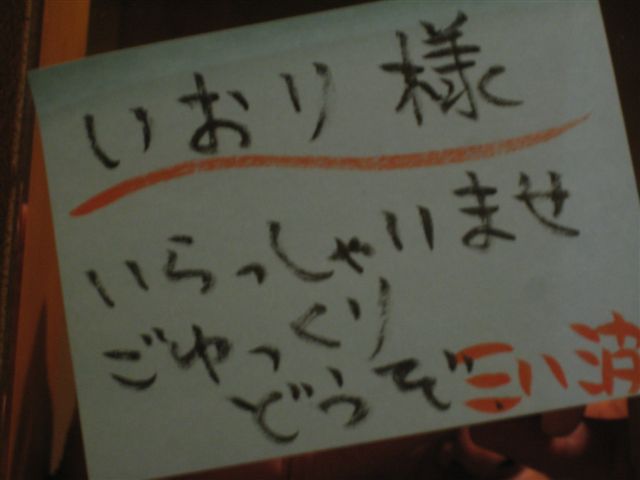 いおり様
いらっしゃいませ
ごゆっくり
どうぞ